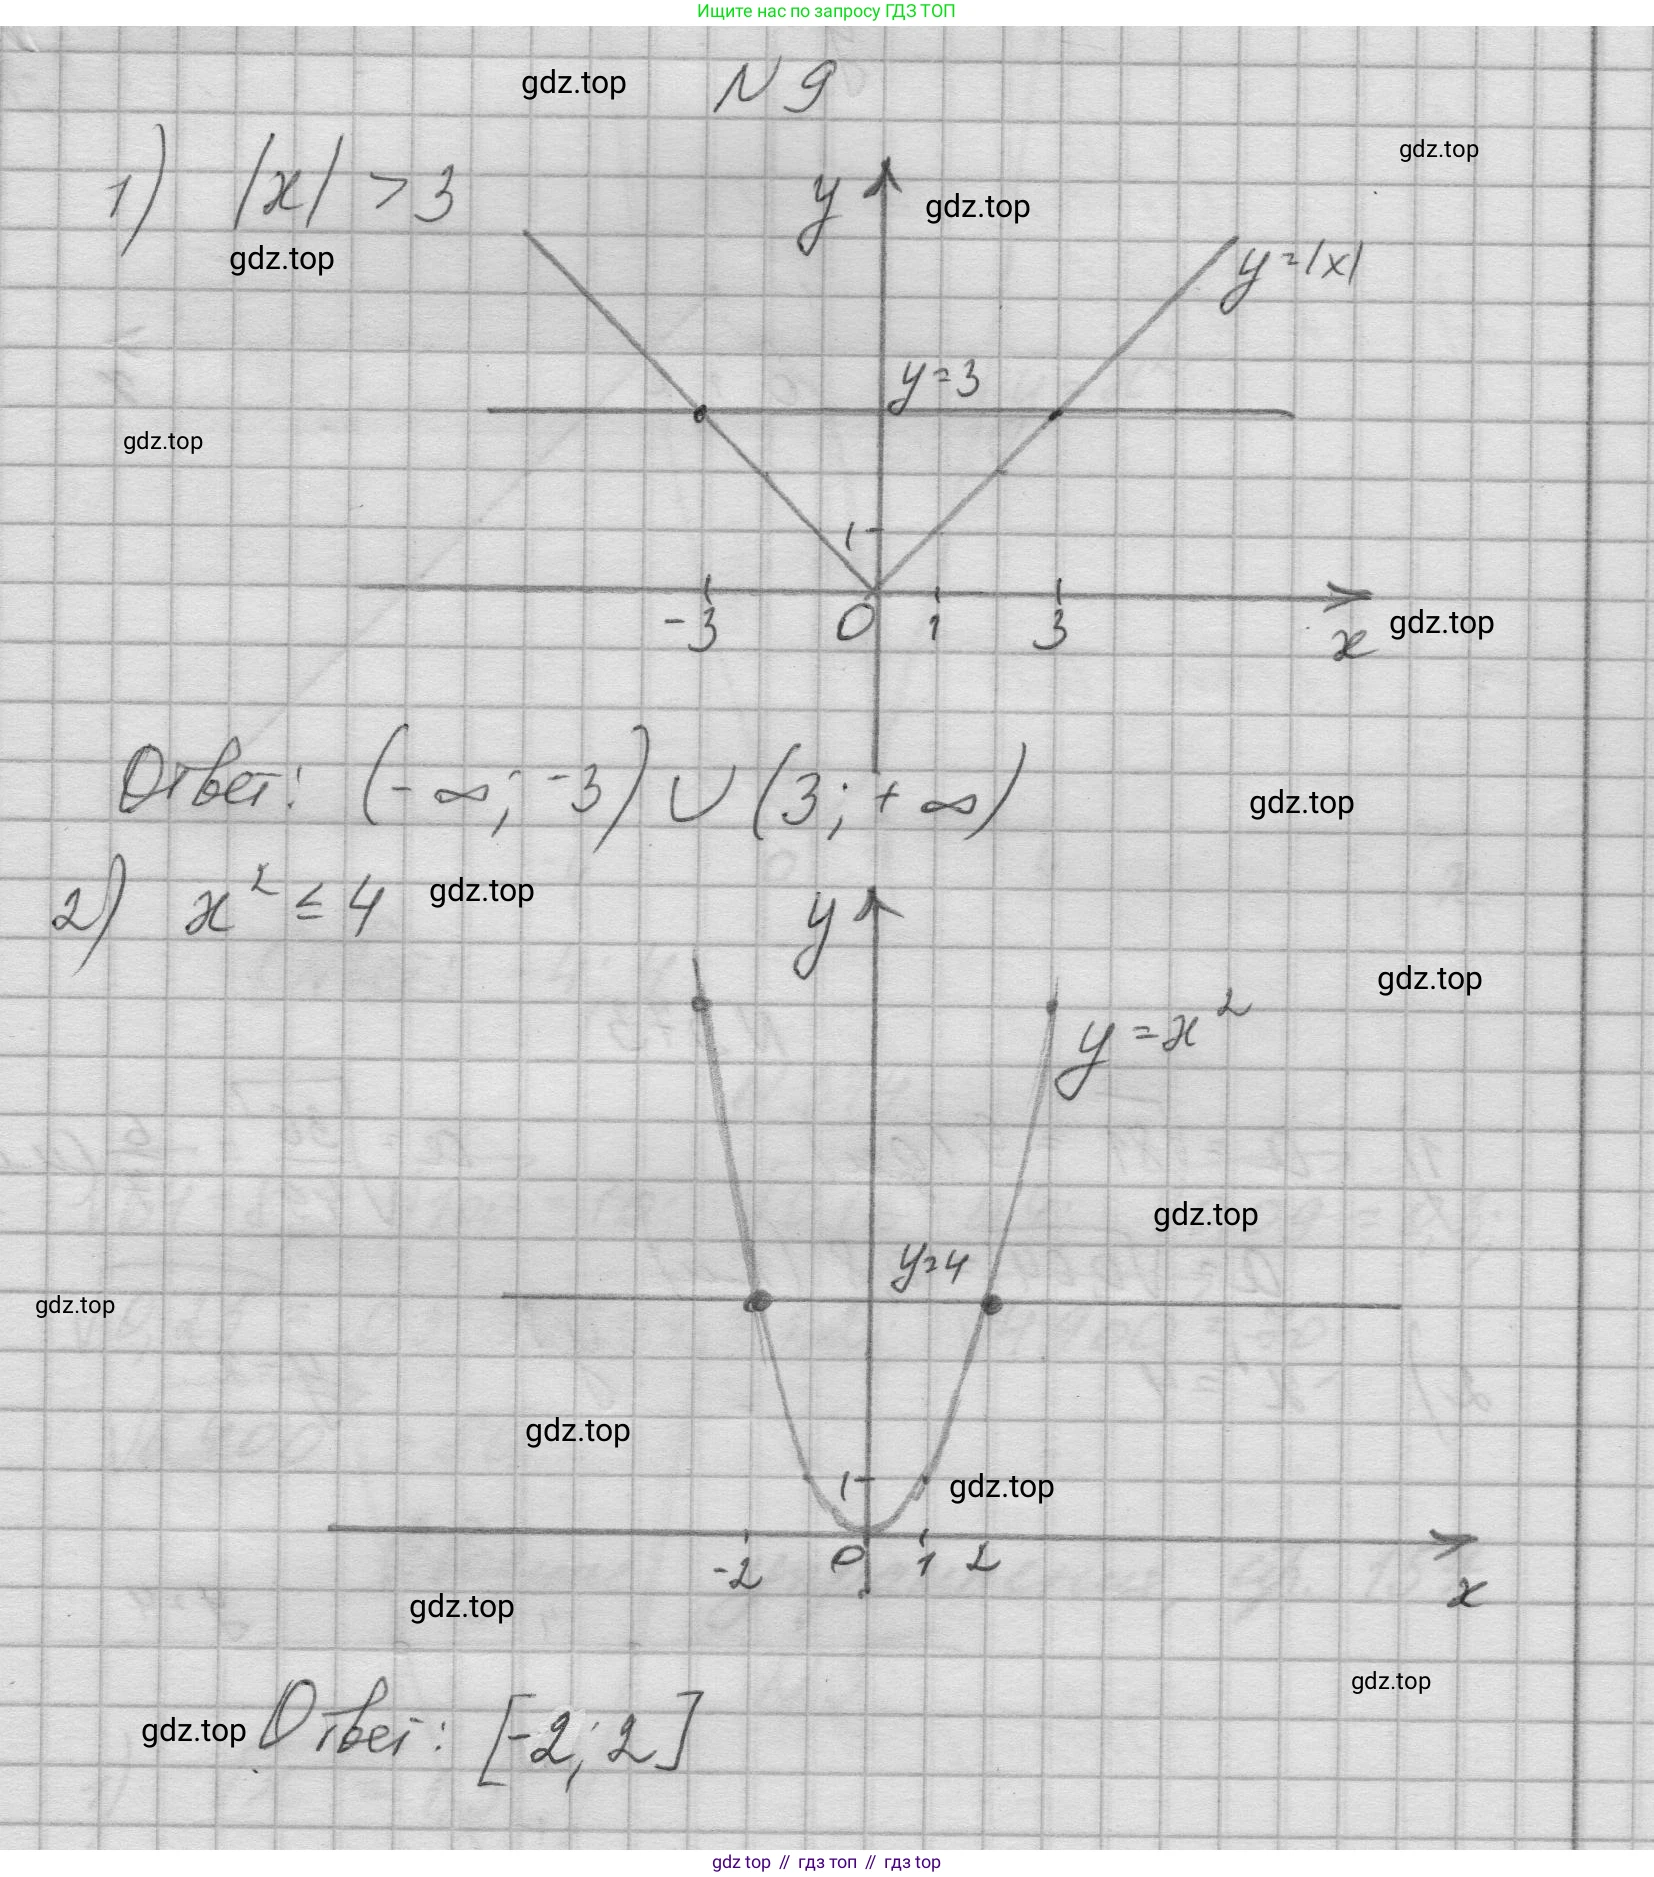 Ищите нас по запросу ГДЗ ТОП
gdz.top
N 9
gdz.top
1) |x| > 3
y
gdz.top
gdz.top
y=|x|
y=3
gdz.top
1
-3
0
1
3
x
gdz.top
Ответ: (-∞; -3) ∪ (3; +∞)
gdz.top
2) x² ≤ 4
gdz.top
y
gdz.top
y=x²
gdz.top
y=4
gdz.top
gdz.top
1
gdz.top
-2
0
1
2
x
gdz.top
gdz.top
gdz.top
Ответ: [-2; 2]
gdz top // гдз топ // gdz top